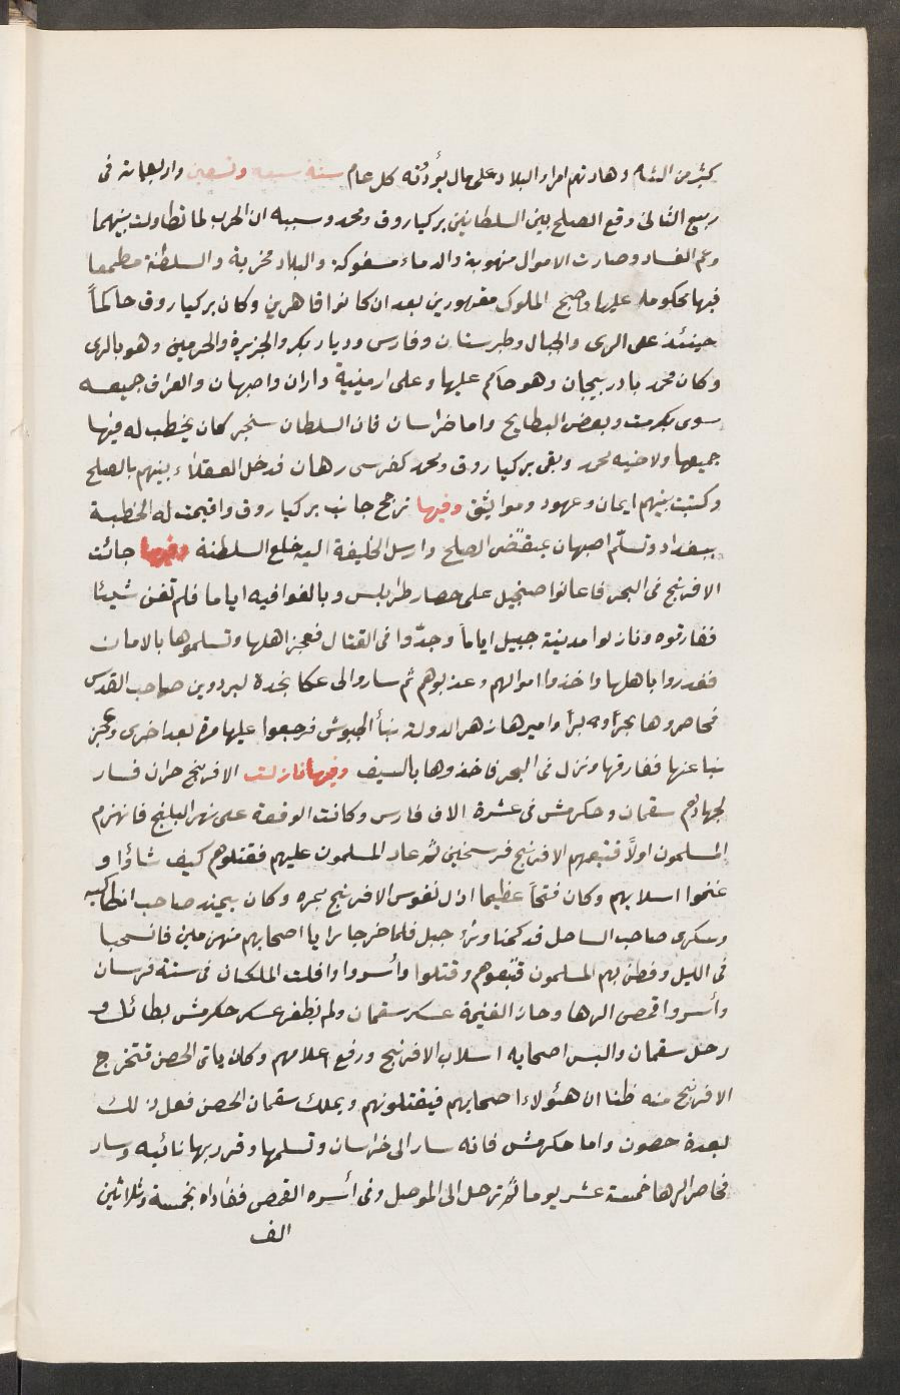 كثير من الشام وهادنهم امراء البلاد على مال يؤدونه كل عام سنة سبعه وتسعين واربعمائة فى
ربيع الثانى وقع الصلح بين السلطانين بركياروق ومحمد وسببه ان الحرب لما تطاولت بينهما
وعم الفساد وصارت الاموال منهوبة والدماء مسفوكة والبلاد مخربة والسلطنة مطموعا
فيها محكوما عليها واصبح الملوك مقهورين بعد ان كانوا قاهرين وكان بركياروق حاكماً
حينئذ على الرى والجبال وطبرستان وفارس وديار بكر والجزيرة والحرمين وهو بالرى
وكان محمد بادربيجان وهو حاكم عليها وعلى ارمينية واران واصبهان والعراق جميعه
سوى تكريت وبعض البطايح واما خراسان فان السلطان سنجر كان يخطب له فيها
جميعها ولاخيه محمد وبقى بركياروق ومحمد كفرسى رهان فدخل العقلاء بينهم بالصلح
وكتبت بينهم ايمان وعهود ومواثيق وفيها ترجح جانب بركياروق واقيمت له الخطبة
ببغداد وتسلّم اصبهان بمقتضى الصلح وارسل الخليفة اليه خلع السلطنة وفيها جائت
الافرنج فى البحر فاعانوا صنجيل على حصار طرابلس وبالغوا فيه اياما فلم تغن شيئا
ففارقوه ونازلوا مدينة جبيل اياماً وجدّوا فى القتال فعجز اهلها وتسلموها بالامان
فغدروا باهلها واخذوا اموالهم وعذبوهم ثم ساروا الى عكا نجدة لبردوين صاحب القدس
فحاصروها بحرًا وبرًا واميرها زهر الدولة بنأ الجيوش فرجعوا عليها مرة بعد اخرى وعجز
بنا عنها ففارقها ونزل فى البحر فاخذوها بالسيف وفيها نازلت الافرنج حران فسار
لجهادهم سقمان وجكرمش فى عشرة الاف فارس وكانت الوقعة على نهر البليخ فانهزم
المسلمون اولاً فتبعهم الافرنج فرسخين ثم عاد المسلمون عليهم فقتلوهم كيف شاؤا و
غنموا اسلابهم وكان فتحاً عظيما اذل نفوس الافرنج بمره وكان بيمند صاحب انطاكيه
وسكرى صاحب الساحل قد كمنا وراء جبل فلما خرجا رايا اصحابهم منهزمين فانسحبا
فى الليل وفطن بهم المسلمون فتبعوهم وقتلوا وأسروا وافلت الملكان فى ستة فرسان
وأسروا قمص الرها وحاز الغنيمة عسكر سقمان ولم يظفر عسكر جكرمش بطائل و
رحل سقمان والبس اصحابه اسلاب الافرنج ورفع اعلامهم وكان ياتى الحصن فتخرج
الافرنج منه ظنا ان هئولاء اصحابهم فيقتلونهم ويملك سقمان الحصن فعل ذلك
بعدة حصون واما جكرمش فانه سار الى خراسان وتسلمها وقرر بها نائبه وسار
فحاصر الرها خمسة عشر يوما ثم ترحل الى الموصل وفى أسره القمص ففاداه بخمسة وثلاثين
الف